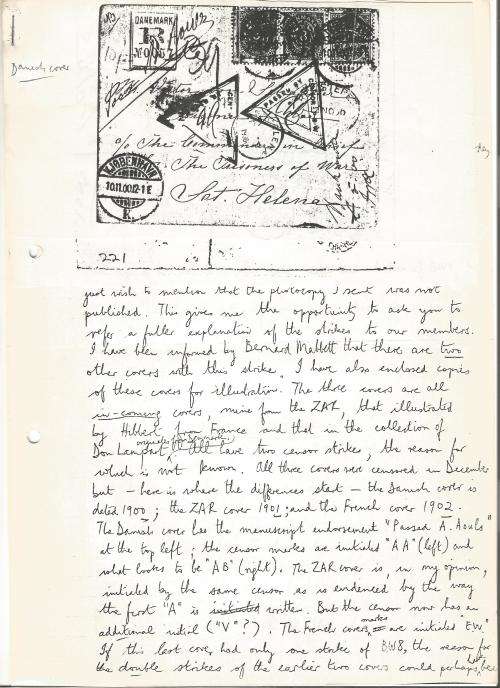 Danish cover
DANEMARK
R
No
c/o The Commander in Chief
The Prisoners of War
Sct. Helena
KJØBENHAVN
10.11.00.12-1 E
K.
PASSED BY
221
just wish to mention that the photocopy I sent was not
published. This gives me the opportunity to ask you to
refer a fuller explanation of the strikes to our members.
I have been informed by Bernard Mabbett that there are two
other covers with this strike. I have also enclosed copies
of these covers for illustration. The three covers are all
in-coming covers, mine from the ZAR, that illustrated
by Hibbert from France and that in the collection of
Don Lampart originates from Denmark. All have two censor strikes, the reason for
which is not known. All three covers were censored in December
but - here is where the differences start - the Danish cover is
dated 1900; the ZAR cover 1901; and the French cover 1902.
The Danish cover has the manuscript endorsement "Passed A.
at the top left; the censor marks are initialed "AA" (left) and
what looks to be "AB" (right). The ZAR cover is, in my opinion,
initialed by the same censor as is evidenced by the way
the first "A" is initialed written. But the censor now has an
additional initial ("V"?). The French covers marks are initialed EW.
If this last cover had only one strike of BW8, the reason for
the double strikes of the earlier two covers could perhaps have been